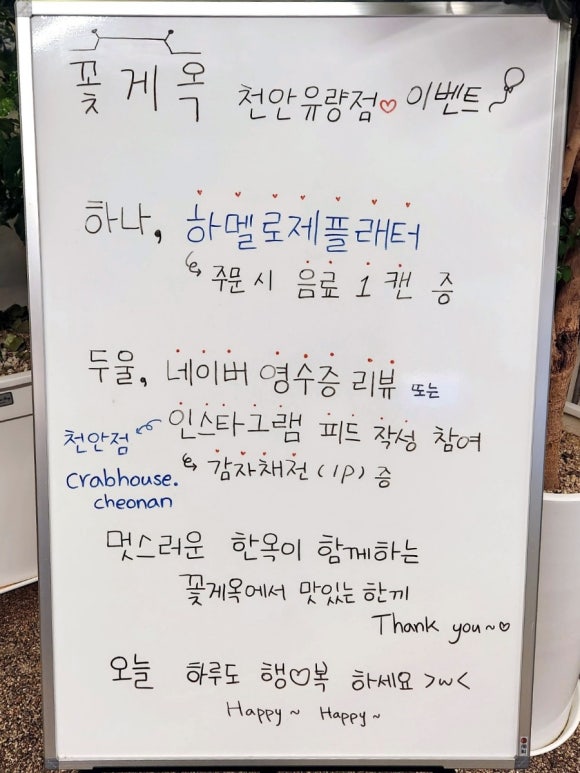 꽃게옥 천안유량점♡ 이벤트
하나, 하멜로제플래터
↳ 주문 시 음료 1 캔 증
두울, 네이버 영수증 리뷰 또는
천안점 인스타그램 피드 작성 참여
crabhouse. ↳ 감자채전 (1P) 증
cheonan
멋스러운 한옥이 함께하는
꽃게옥에서 맛있는 한끼
Thank you~♡
오늘 하루도 행♡복 하세요 >w<
Happy~ Happy~